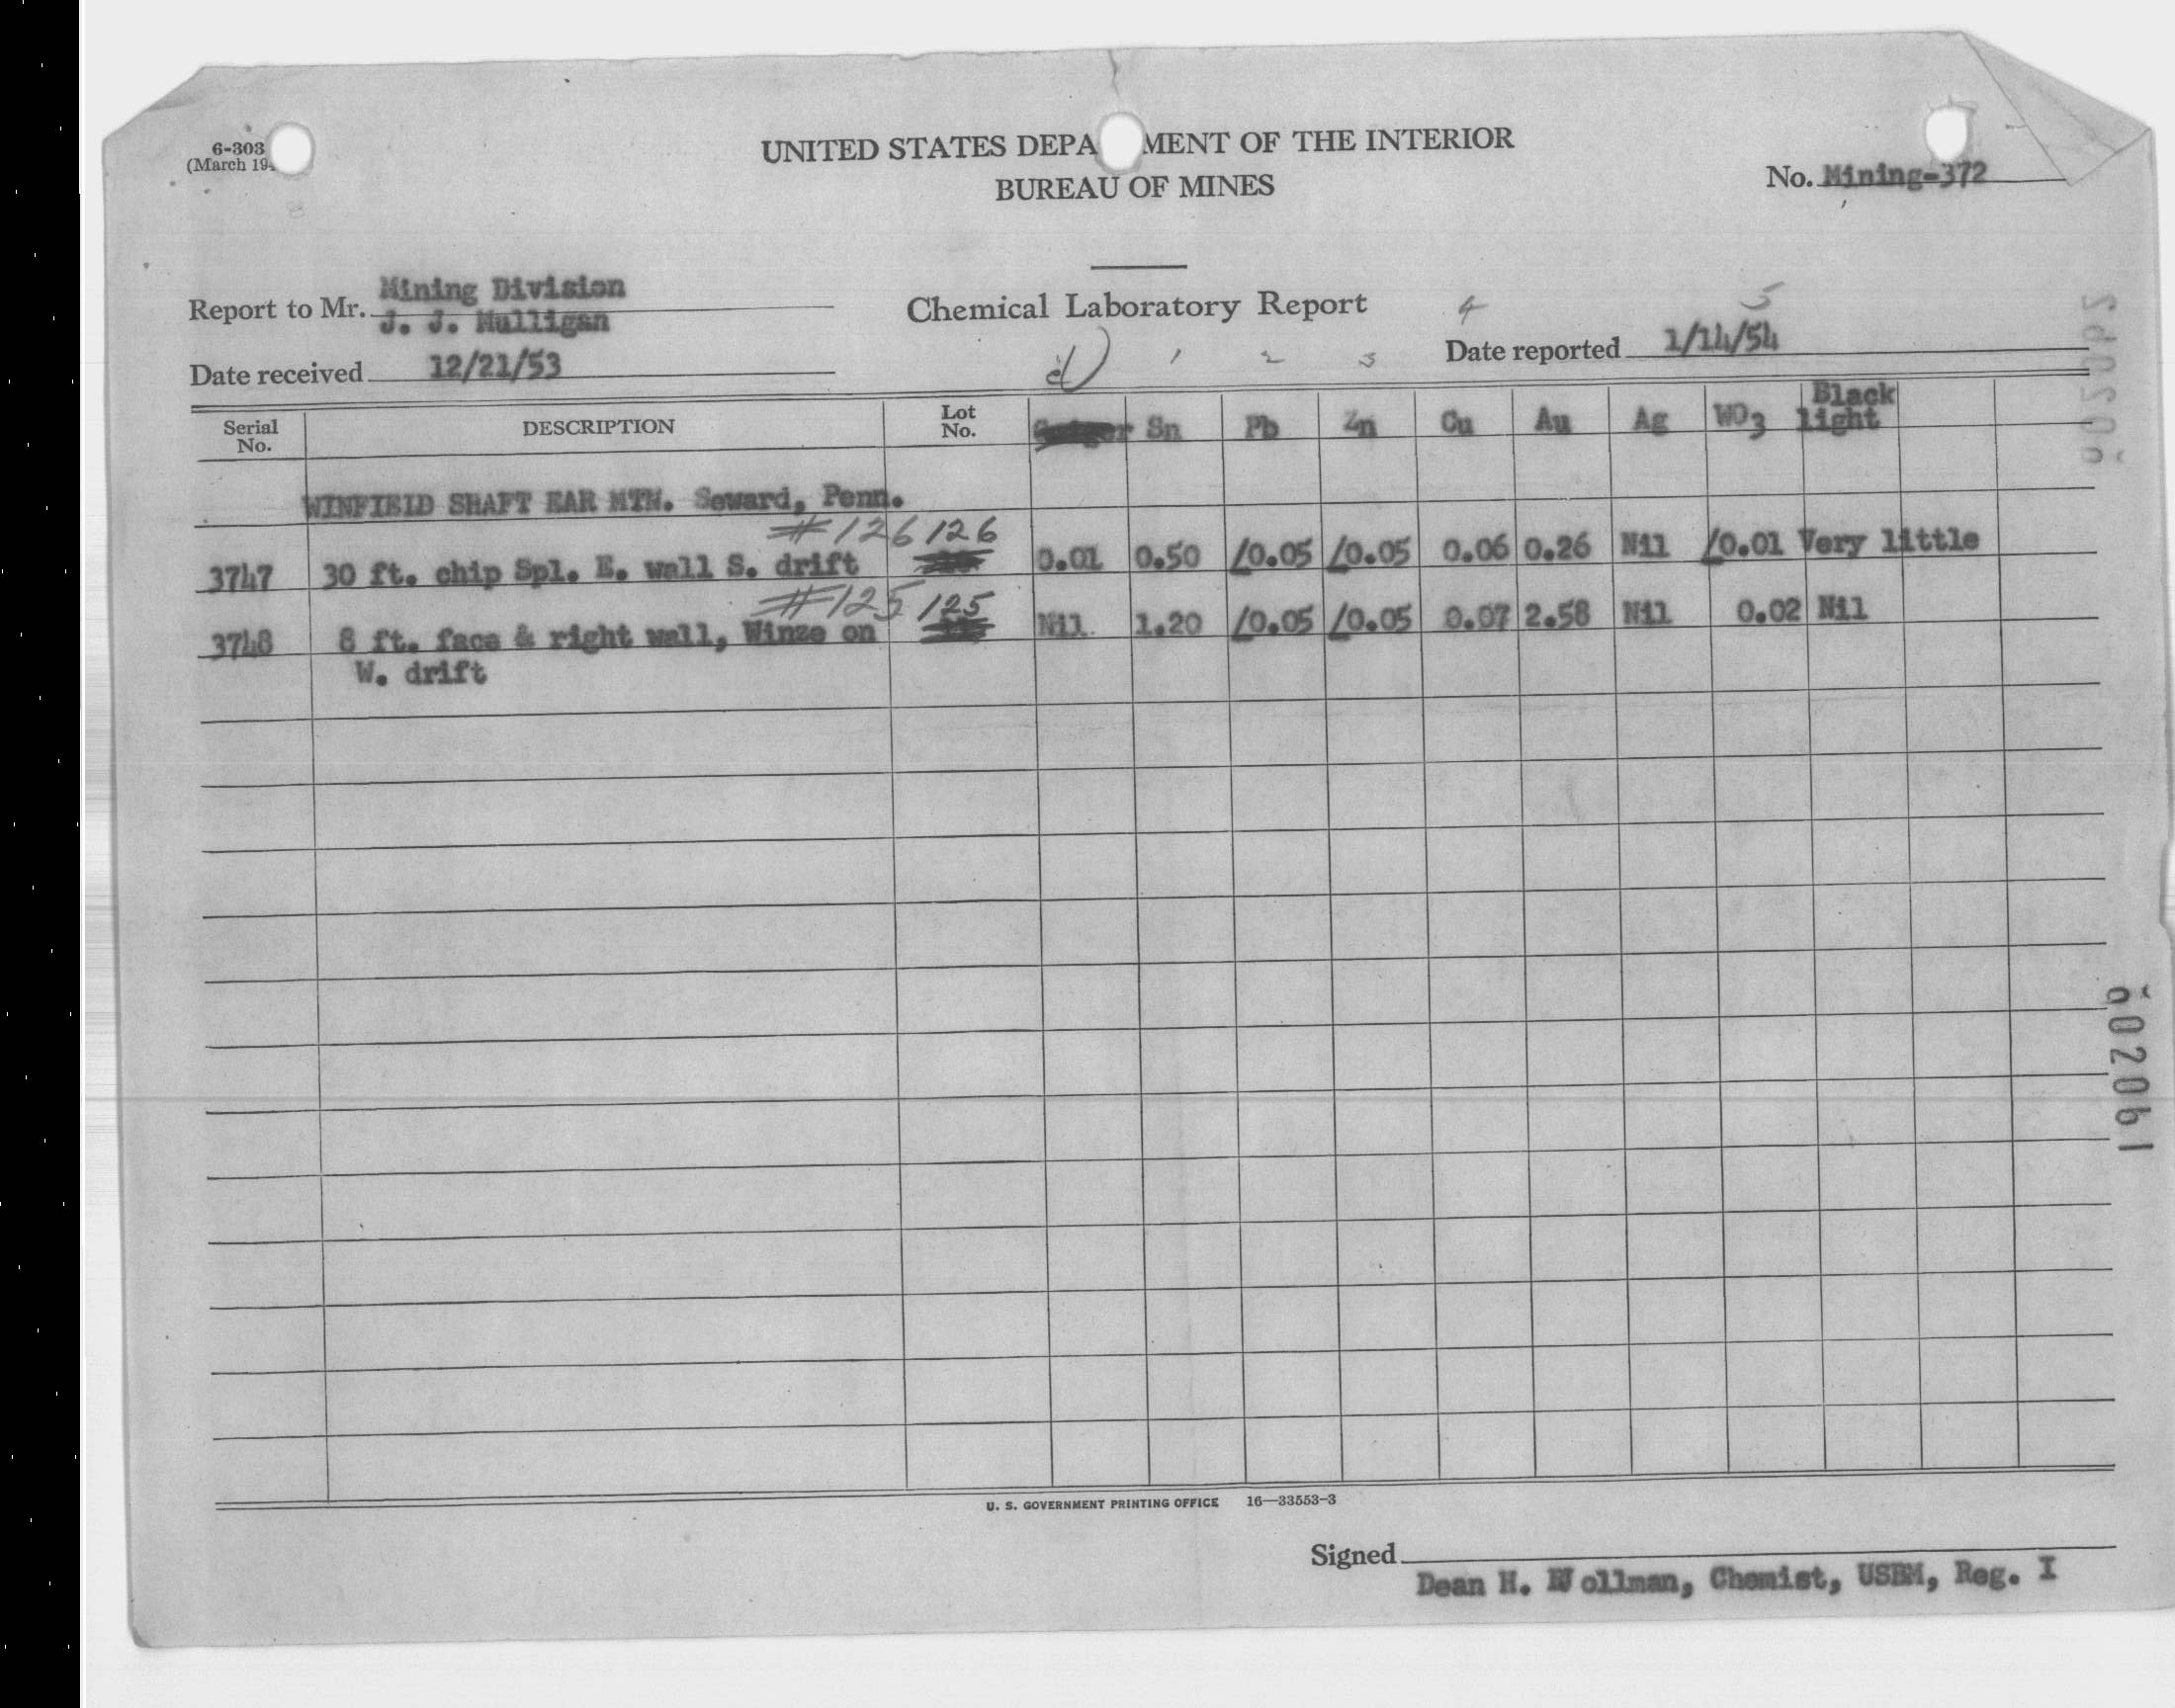 6-303
(March 19
UNITED STATES DEPA MENT OF THE INTERIOR
BUREAU OF MINES
No. Mining-372
Report to Mr. Mining Division
J. J. Mulligan
Chemical Laboratory Report
4 5
Date received 12/21/53
1 2 3
Date reported 1/14/54
Serial No. DESCRIPTION Lot No. Sn Pb Zn Cu Au Ag WO3 Black light
WINFIELD SHAFT EAR MTN. Seward, Penn.
#126 126
3747 30 ft. chip Spl. E. wall S. drift 0.01 0.50 /0.05 /0.05 0.06 0.26 Nil /0.01 Very little
#125 125
3748 8 ft. face & right wall, Winze on Nil 1.20 /0.05 /0.05 0.07 2.58 Nil 0.02 Nil
W. drift
U. S. GOVERNMENT PRINTING OFFICE 16—33553-3
Signed
Dean H. ollman, Chemist, USBM, Reg. I